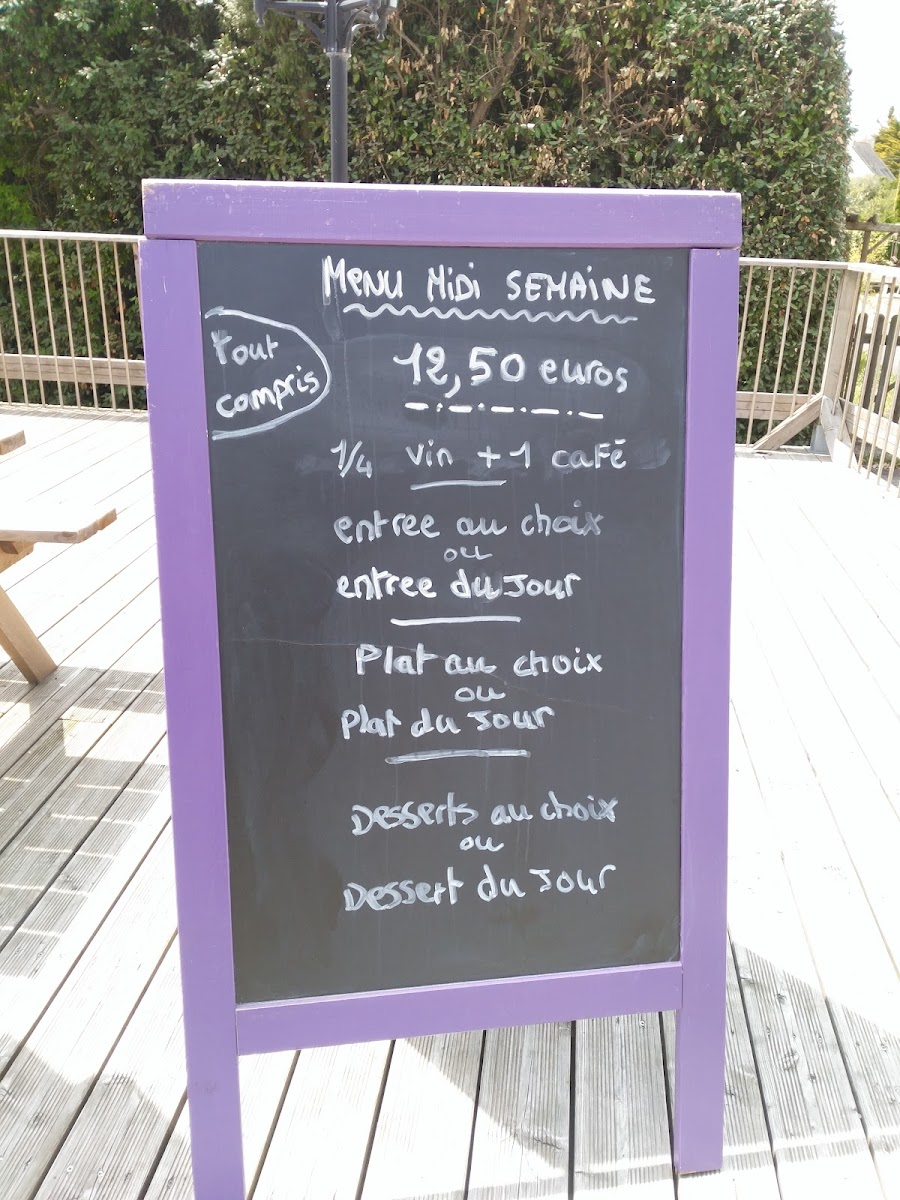 MENU MIDI SEMAINE
Tout
compris
12,50 euros
1/4 vin + 1 café
entree au choix
ou
entree du Jour
Plat au choix
ou
Plat du Jour
Desserts au choix
ou
Dessert du Jour